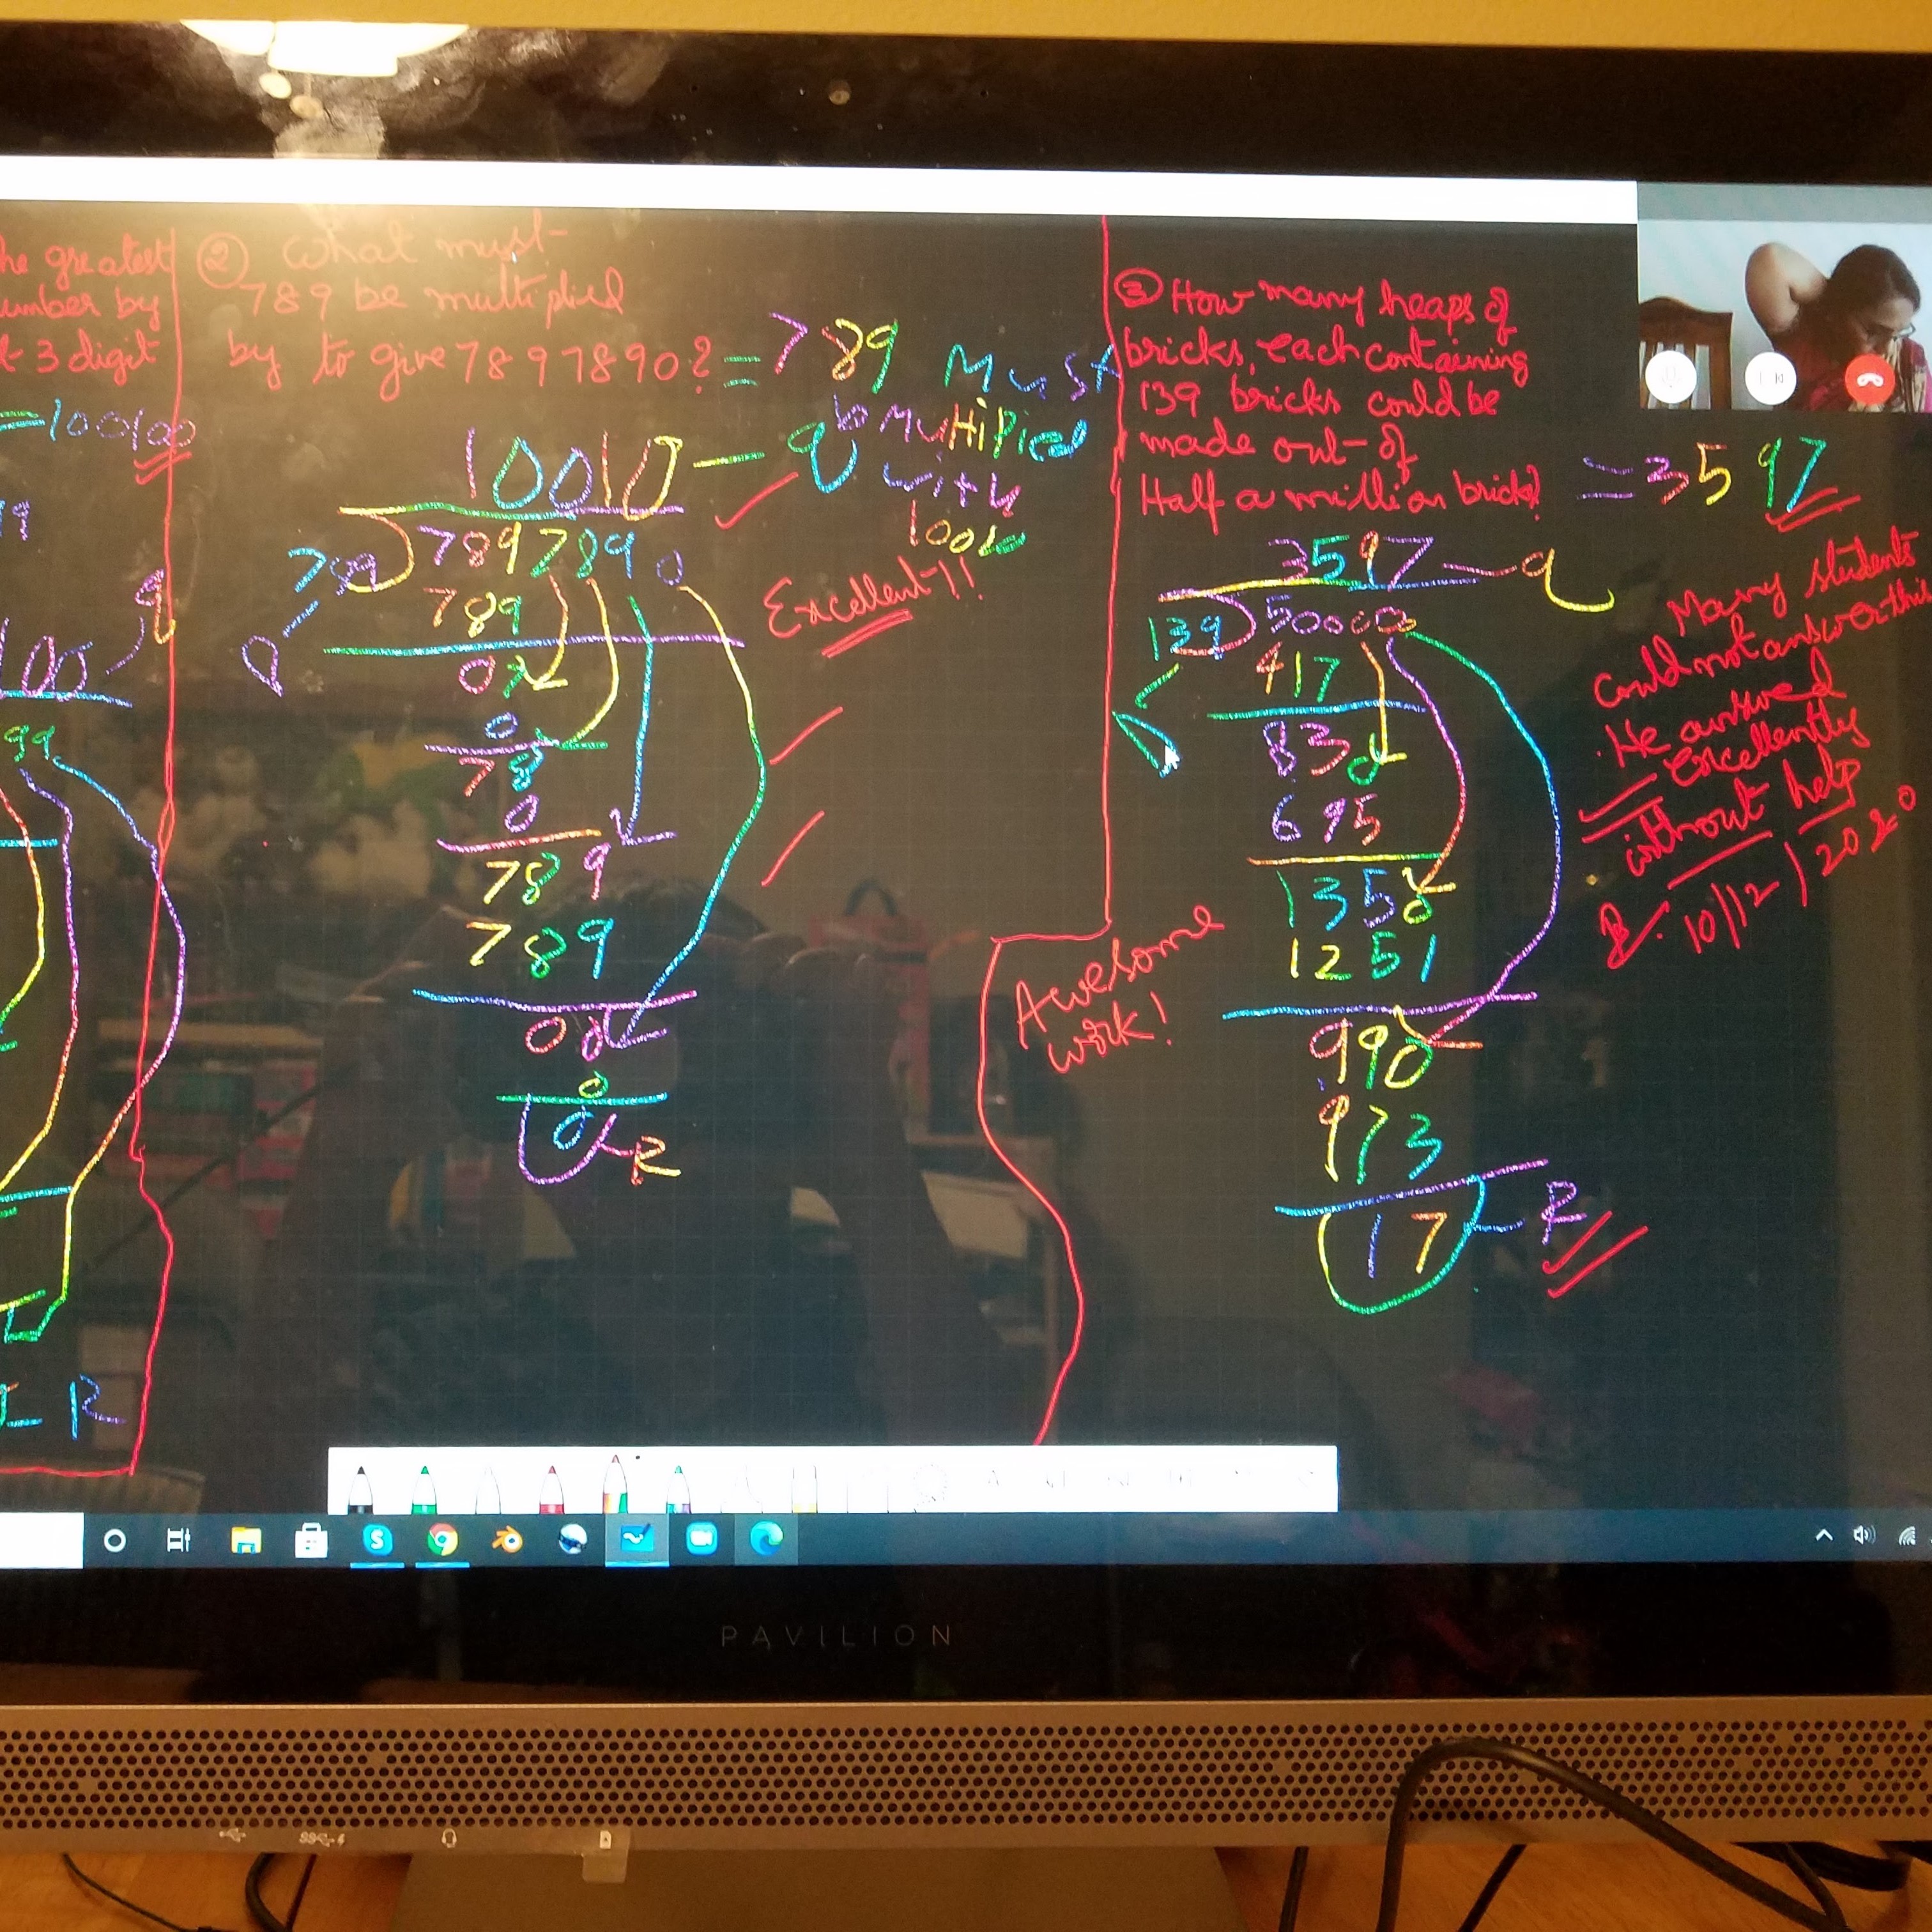 he greatest
umber by
t 3 digit
=100100
99
R
② What must
789 be multiplied
by to give 7897890?
= 789 Must
b Multiplied
with
10010 - q
789 7897890
D
789
07
0
78
0
789
789
00
0
0 R
Excellent!!
③ How many heaps of
bricks, each containing
139 bricks could be
made out of
Half a million brick?
= 3597
3597 - q
139 500000
D
417
830
695
1350
1251
990
973
17 - R
Awesome
work!
Many students
Could not answer this
He answred
excellently
without help
10/12/2020
PAVILION